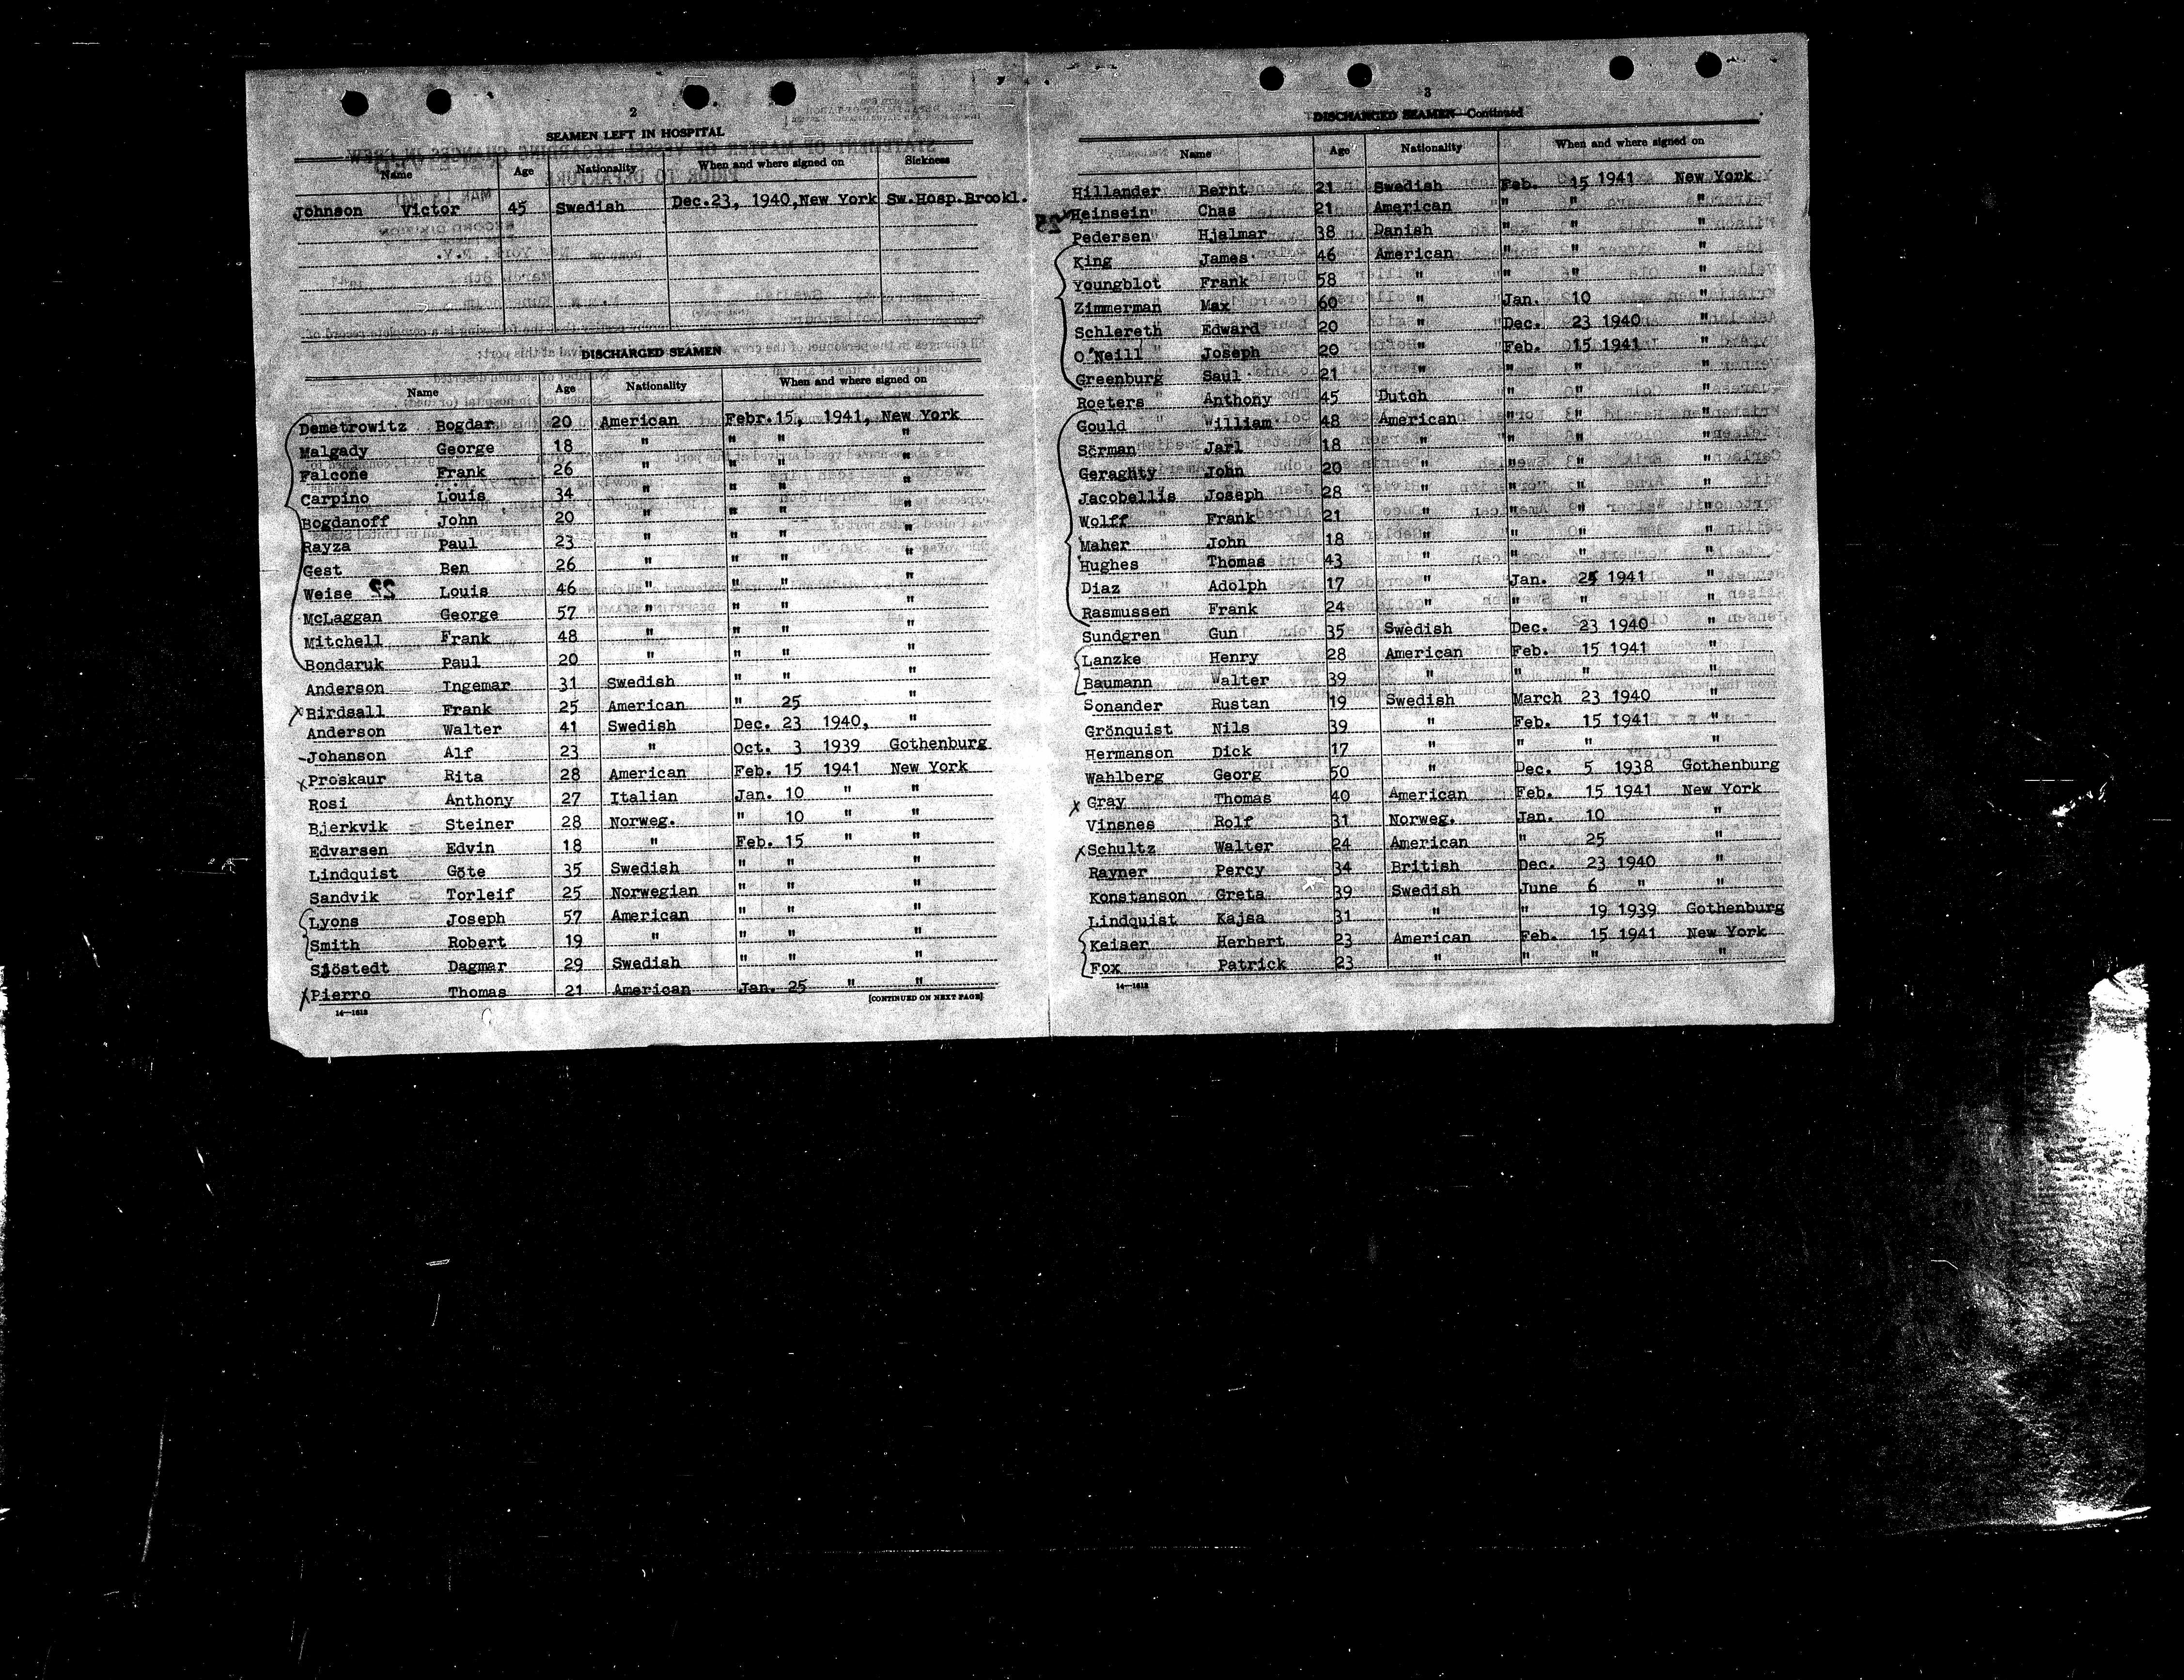 2
SEAMEN LEFT IN HOSPITAL
Name Age Nationality When and where signed on Sickness
Johnson Victor 45 Swedish Dec.23, 1940,New York Sw.Hosp.Brookl.
DISCHARGED SEAMEN
Name Age Nationality When and where signed on
Demetrowitz Bogdar 20 American Febr.15, 1941, New York
Malgady George 18 " " " "
Falcone Frank 26 " " " "
Carpino Louis 34 " " " "
Bogdanoff John 20 " " " "
Rayza Paul 23 " " " "
Gest Ben 26 " " " "
Weise Louis 46 " " " "
McLaggan George 57 " " " "
Mitchell Frank 48 " " " "
Bondaruk Paul 20 " " " "
Anderson Ingemar 31 Swedish " " "
X Birdsall Frank 25 American " 25 "
Anderson Walter 41 Swedish Dec. 23 1940, "
Johanson Alf 23 " Oct. 3 1939 Gothenburg
X Proskaur Rita 28 American Feb. 15 1941 New York
Rosi Anthony 27 Italian Jan. 10 " "
Bjerkvik Steiner 28 Norweg. " 10 " "
Edvarsen Edvin 18 " Feb. 15 " "
Lindquist Göte 35 Swedish " " "
Sandvik Torleif 25 Norwegian " " "
Lyons Joseph 57 American " " "
Smith Robert 19 " " " "
Sjöstedt Dagmar 29 Swedish " " "
X Pierro Thomas 21 American Jan. 25 " "
14—1613 [CONTINUED ON NEXT PAGE]
3
DISCHARGED SEAMEN—Continued
Name Age Nationality When and where signed on
Hillander Bernt 21 Swedish Feb. 15 1941 New York
X Heinsein Chas 21 American " " "
Pedersen Hjalmar 38 Danish " " "
King James 46 American " " "
Youngblot Frank 58 " " " "
Zimmerman Max 60 " Jan. 10 "
Schlereth Edward 20 " Dec. 23 1940 "
O'Neill Joseph 20 " Feb. 15 1941 "
Greenburg Saul 21 " " " "
Roeters Anthony 45 Dutch " " "
Gould William 48 American " " "
Sörman Jarl 18 " " " "
Geraghty John 20 " " " "
Jacobellis Joseph 28 " " " "
Wolff Frank 21 " " " "
Maher John 18 " " " "
Hughes Thomas 43 " " " "
Diaz Adolph 17 " Jan. 25 1941 "
Rasmussen Frank 24 " " " "
Sundgren Gun 35 Swedish Dec. 23 1940 "
Lanzke Henry 28 American Feb. 15 1941 "
Baumann Walter 39 " " " "
Sonander Rustan 19 Swedish March 23 1940 "
Grönquist Nils 39 " Feb. 15 1941 "
Hermanson Dick 17 " " " "
Wahlberg Georg 50 " Dec. 5 1938 Gothenburg
X Gray Thomas 40 American Feb. 15 1941 New York
Vinsnes Rolf 31 Norweg. Jan. 10 "
X Schultz Walter 24 American " 25 "
Rayner Percy 34 British Dec. 23 1940 "
Konstanson Greta 39 Swedish June 6 " "
Lindquist Kajsa 31 " " 19 1939 Gothenburg
Keiser Herbert 23 American Feb. 15 1941 New York
Fox Patrick 23 " " " "
14—1613